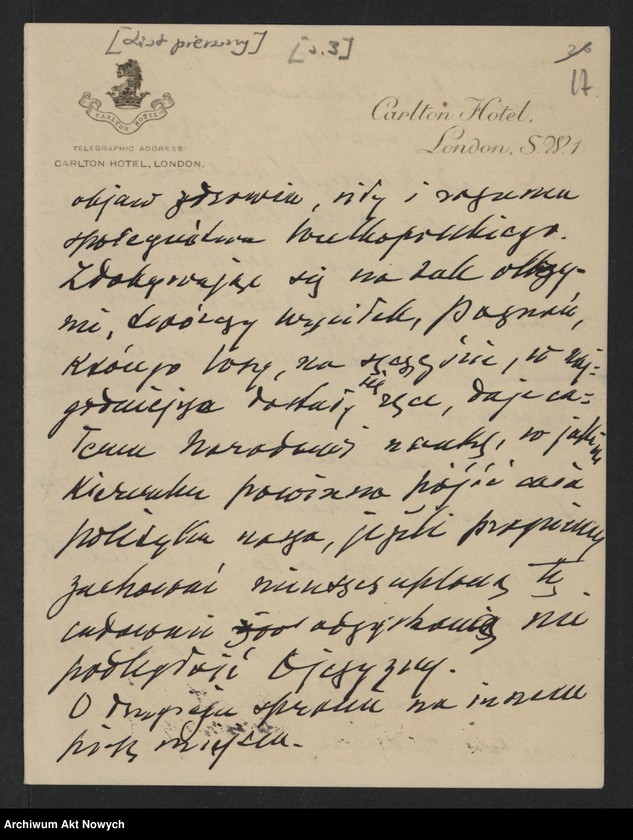 [List pierwszy] [s.3]
26
17
CARLTON HOTEL
TELEGRAPHIC ADDRESS
CARLTON HOTEL, LONDON.
Carlton Hotel.
London. S.W.1
objaw zdrowia, siły i rozumu
społeczeństwa Wielkopolskiego.
Zdobywając się na tak olbrzy-
mi, twórczy wysiłek, Poznań,
którego losy, na szczęście, w naj-
godniejsze dostały się ręce, daje ca-
łemu Narodowi naukę, w jakim
kierunku powinna pójść cała
polityka nasza, jeżeli pragniemy
zachować nieuszczuploną tę
cudownie odzyskaną nie
podległość Ojczyzny.
O drugiej sprawie na innem
piszę miejscu.
Archiwum Akt Nowych